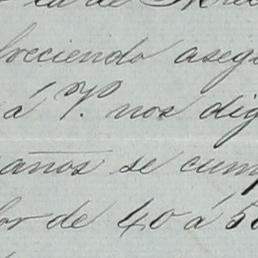 de
freciendo aseg
á V. nos dig
años se cum
or de 40 á 50